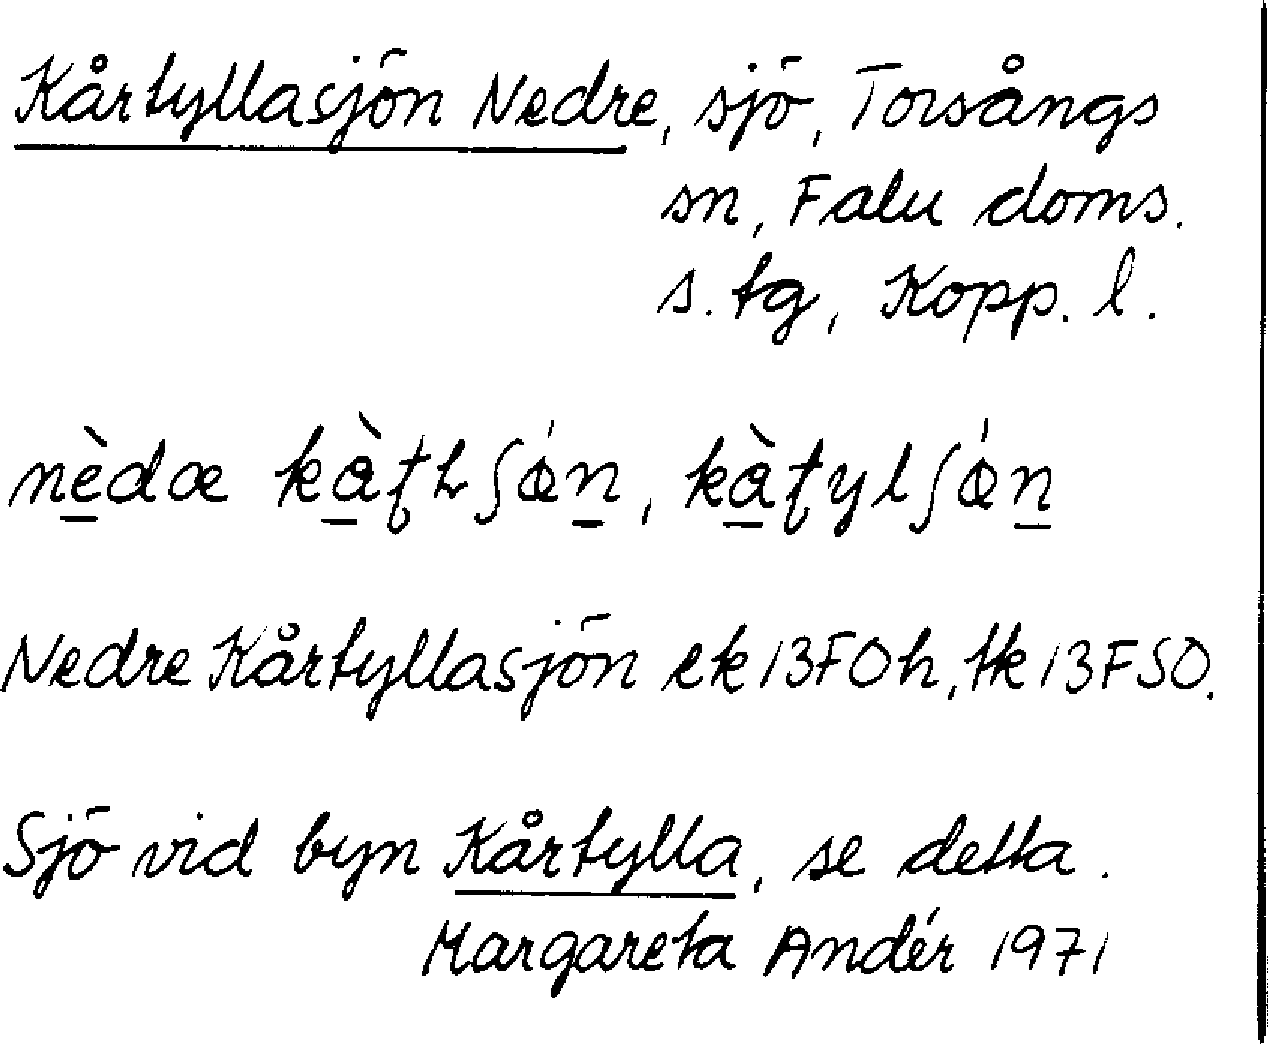 Kårtyllasjön Nedre, sjö, Torsångs
sn, Falu doms.
s. tg, Kopp. l.
nèdæ
Nedre Kårtyllasjön ek 13F0h, tk 13FSO.
Sjö vid byn Kårtylla, se detta.
Margareta Andér 1971